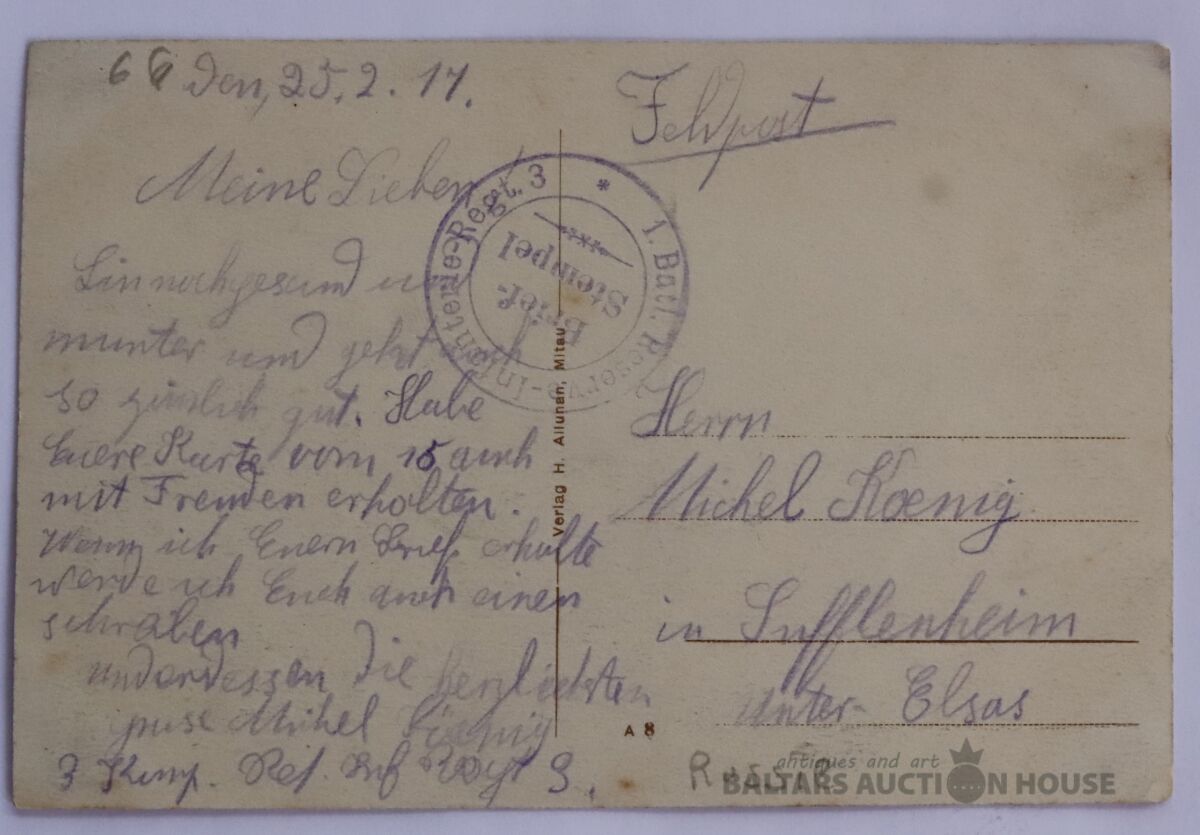 66 Den, 25.2.17.
Meine Lieben!
Bin noch gesund und
munter und geht auch
so zimlich gut. Habe
Euere Karte vom 15 auch
mit Freuden erholten.
Wenn ich Euern Brief erhalte
werde ich Euch auch einen
schraben
underdessen die herzlichsten
Michel Koenig
3 Komp. Res. Inf Regt 3.
Feldpost
1. Batl. Reserve-Infanterie-Regt. 3 *
Brief-
Stempel
Herrn
Michel Koenig
in Sufflenheim
Unter-Elsas
Verlag H. Allunan, Mitau
A 8
antiques and art
BALTARS AUCTION HOUSE